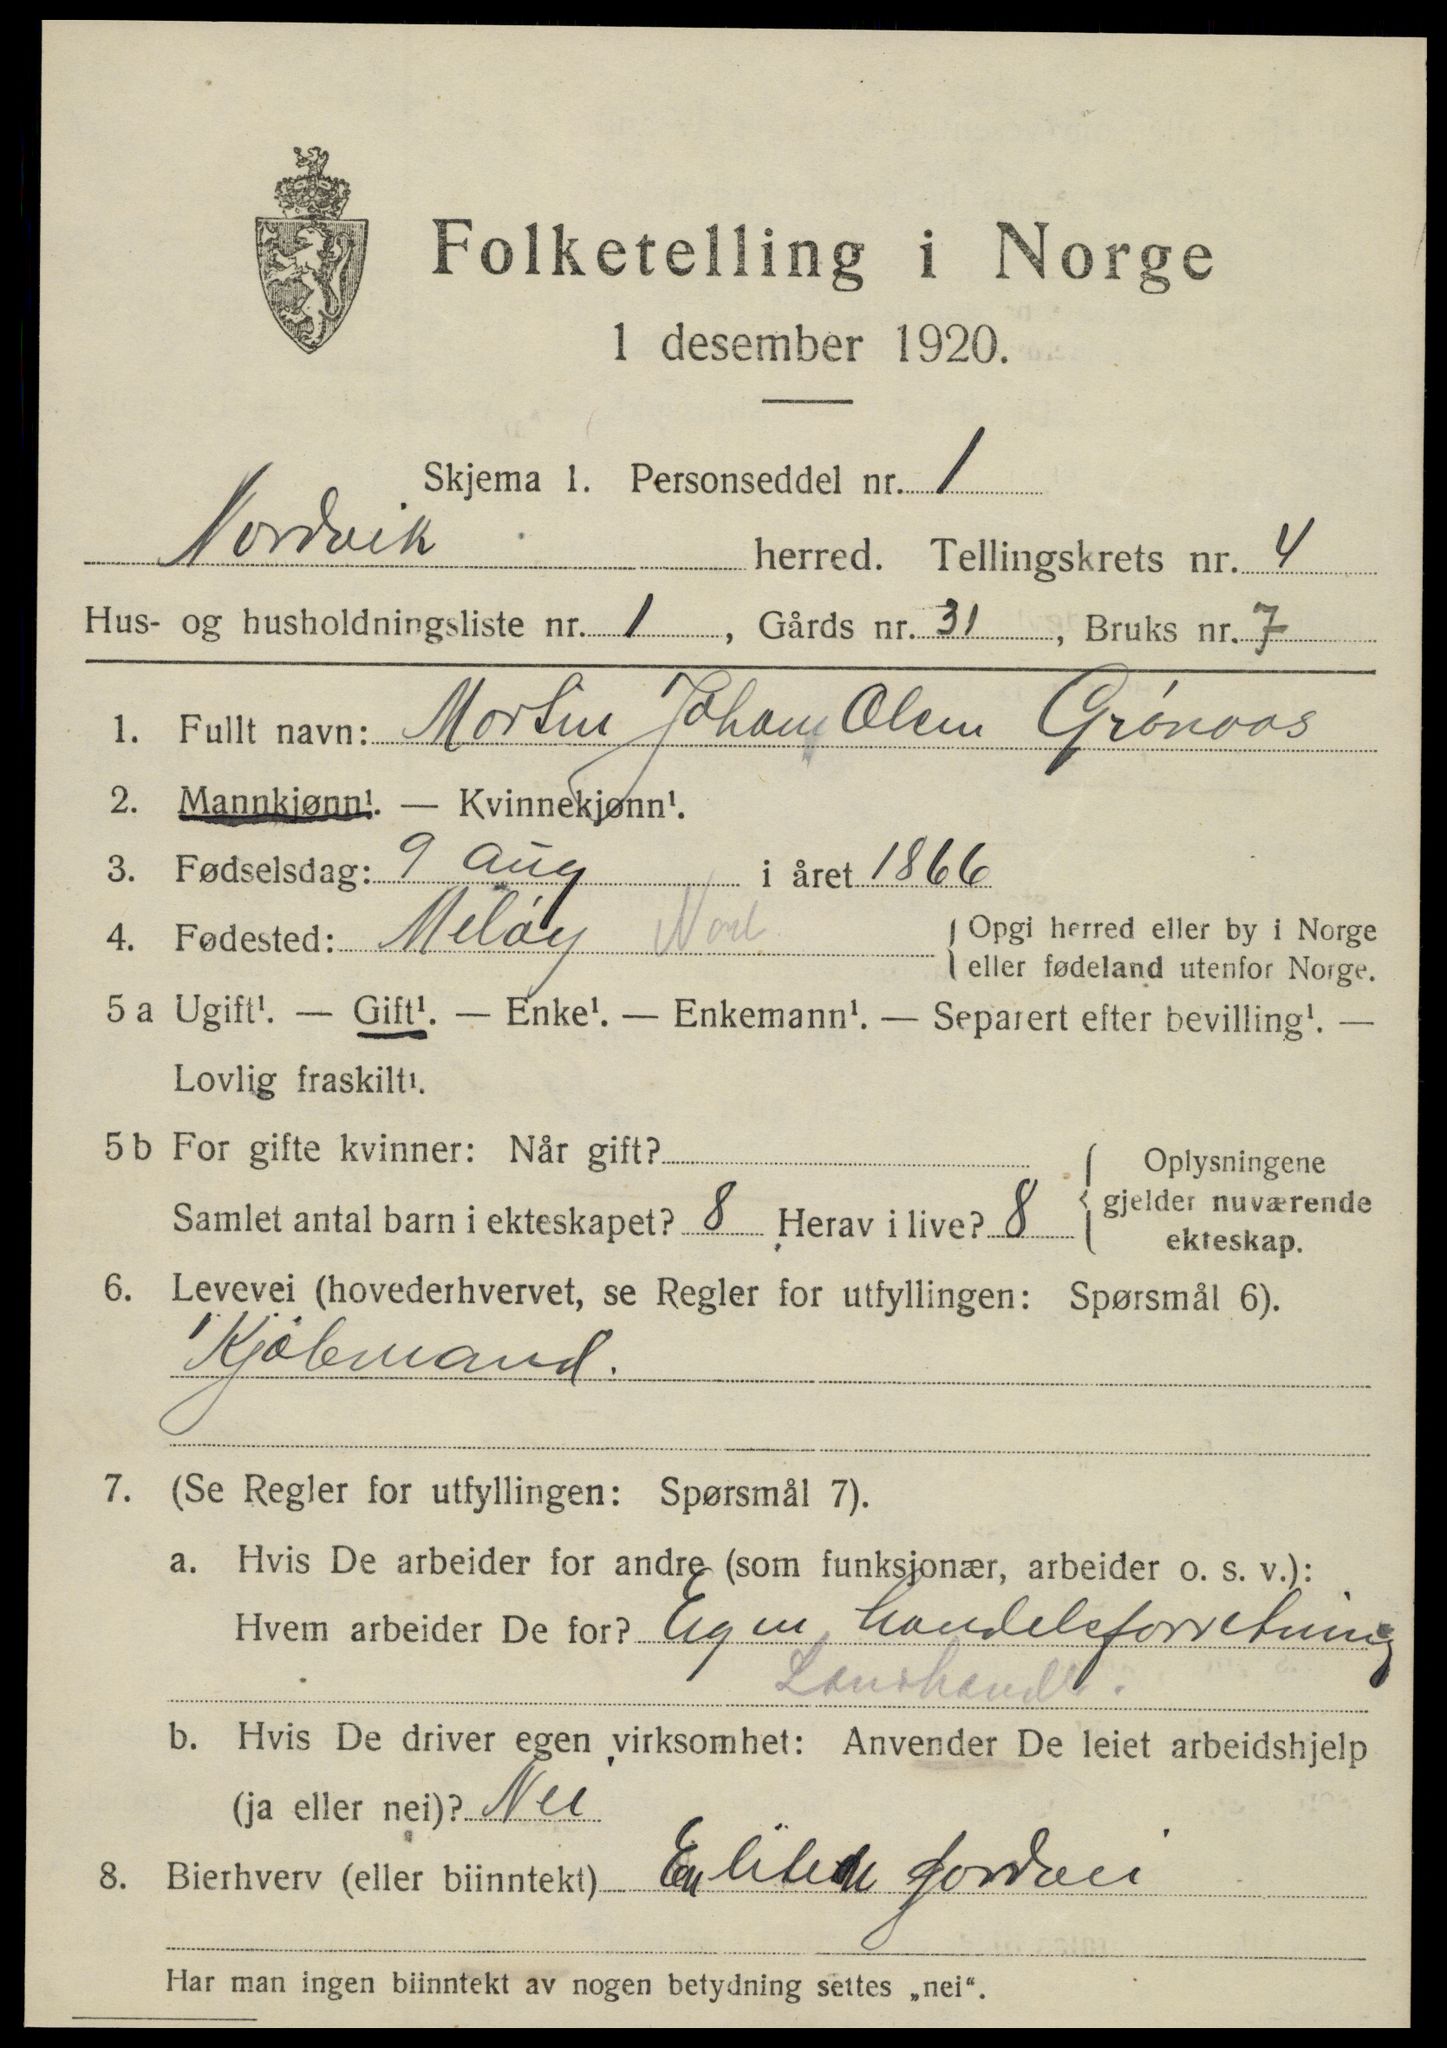 Folketelling i Norge
1 desember 1920.
Skjema 1. Personseddel nr. 1
Nordvik herred. Tellingskrets nr. 4
Hus- og husholdningsliste nr. 1, Gårds nr. 31, Bruks nr. 7
1. Fullt navn: Mortin Johan Olsen Grönaas
2. Mannkjønn¹. — Kvinnekjønn¹.
3. Fødselsdag: 9 aug i året 1866
4. Fødested: Meløy Nord { Opgi herred eller by i Norge
eller fødeland utenfor Norge.
5 a Ugift¹. — Gift¹. — Enke¹. — Enkemann¹. — Separert efter bevilling¹. —
Lovlig fraskilt¹.
5 b For gifte kvinner: Når gift?
Samlet antal barn i ekteskapet? 8 Herav i live? 8
{ Oplysningene
gjelder nuværende
ekteskap.
6. Levevei (hovederhvervet, se Regler for utfyllingen: Spørsmål 6).
Kjöbmand.
7. (Se Regler for utfyllingen: Spørsmål 7).
a. Hvis De arbeider for andre (som funksjonær, arbeider o. s. v.):
Hvem arbeider De for? Egen handelsforretning
Landhandl.
b. Hvis De driver egen virksomhet: Anvender De leiet arbeidshjelp
(ja eller nei)? Nei
8. Bierhverv (eller biinntekt) En liten jordvei
Har man ingen biinntekt av nogen betydning settes „nei“.